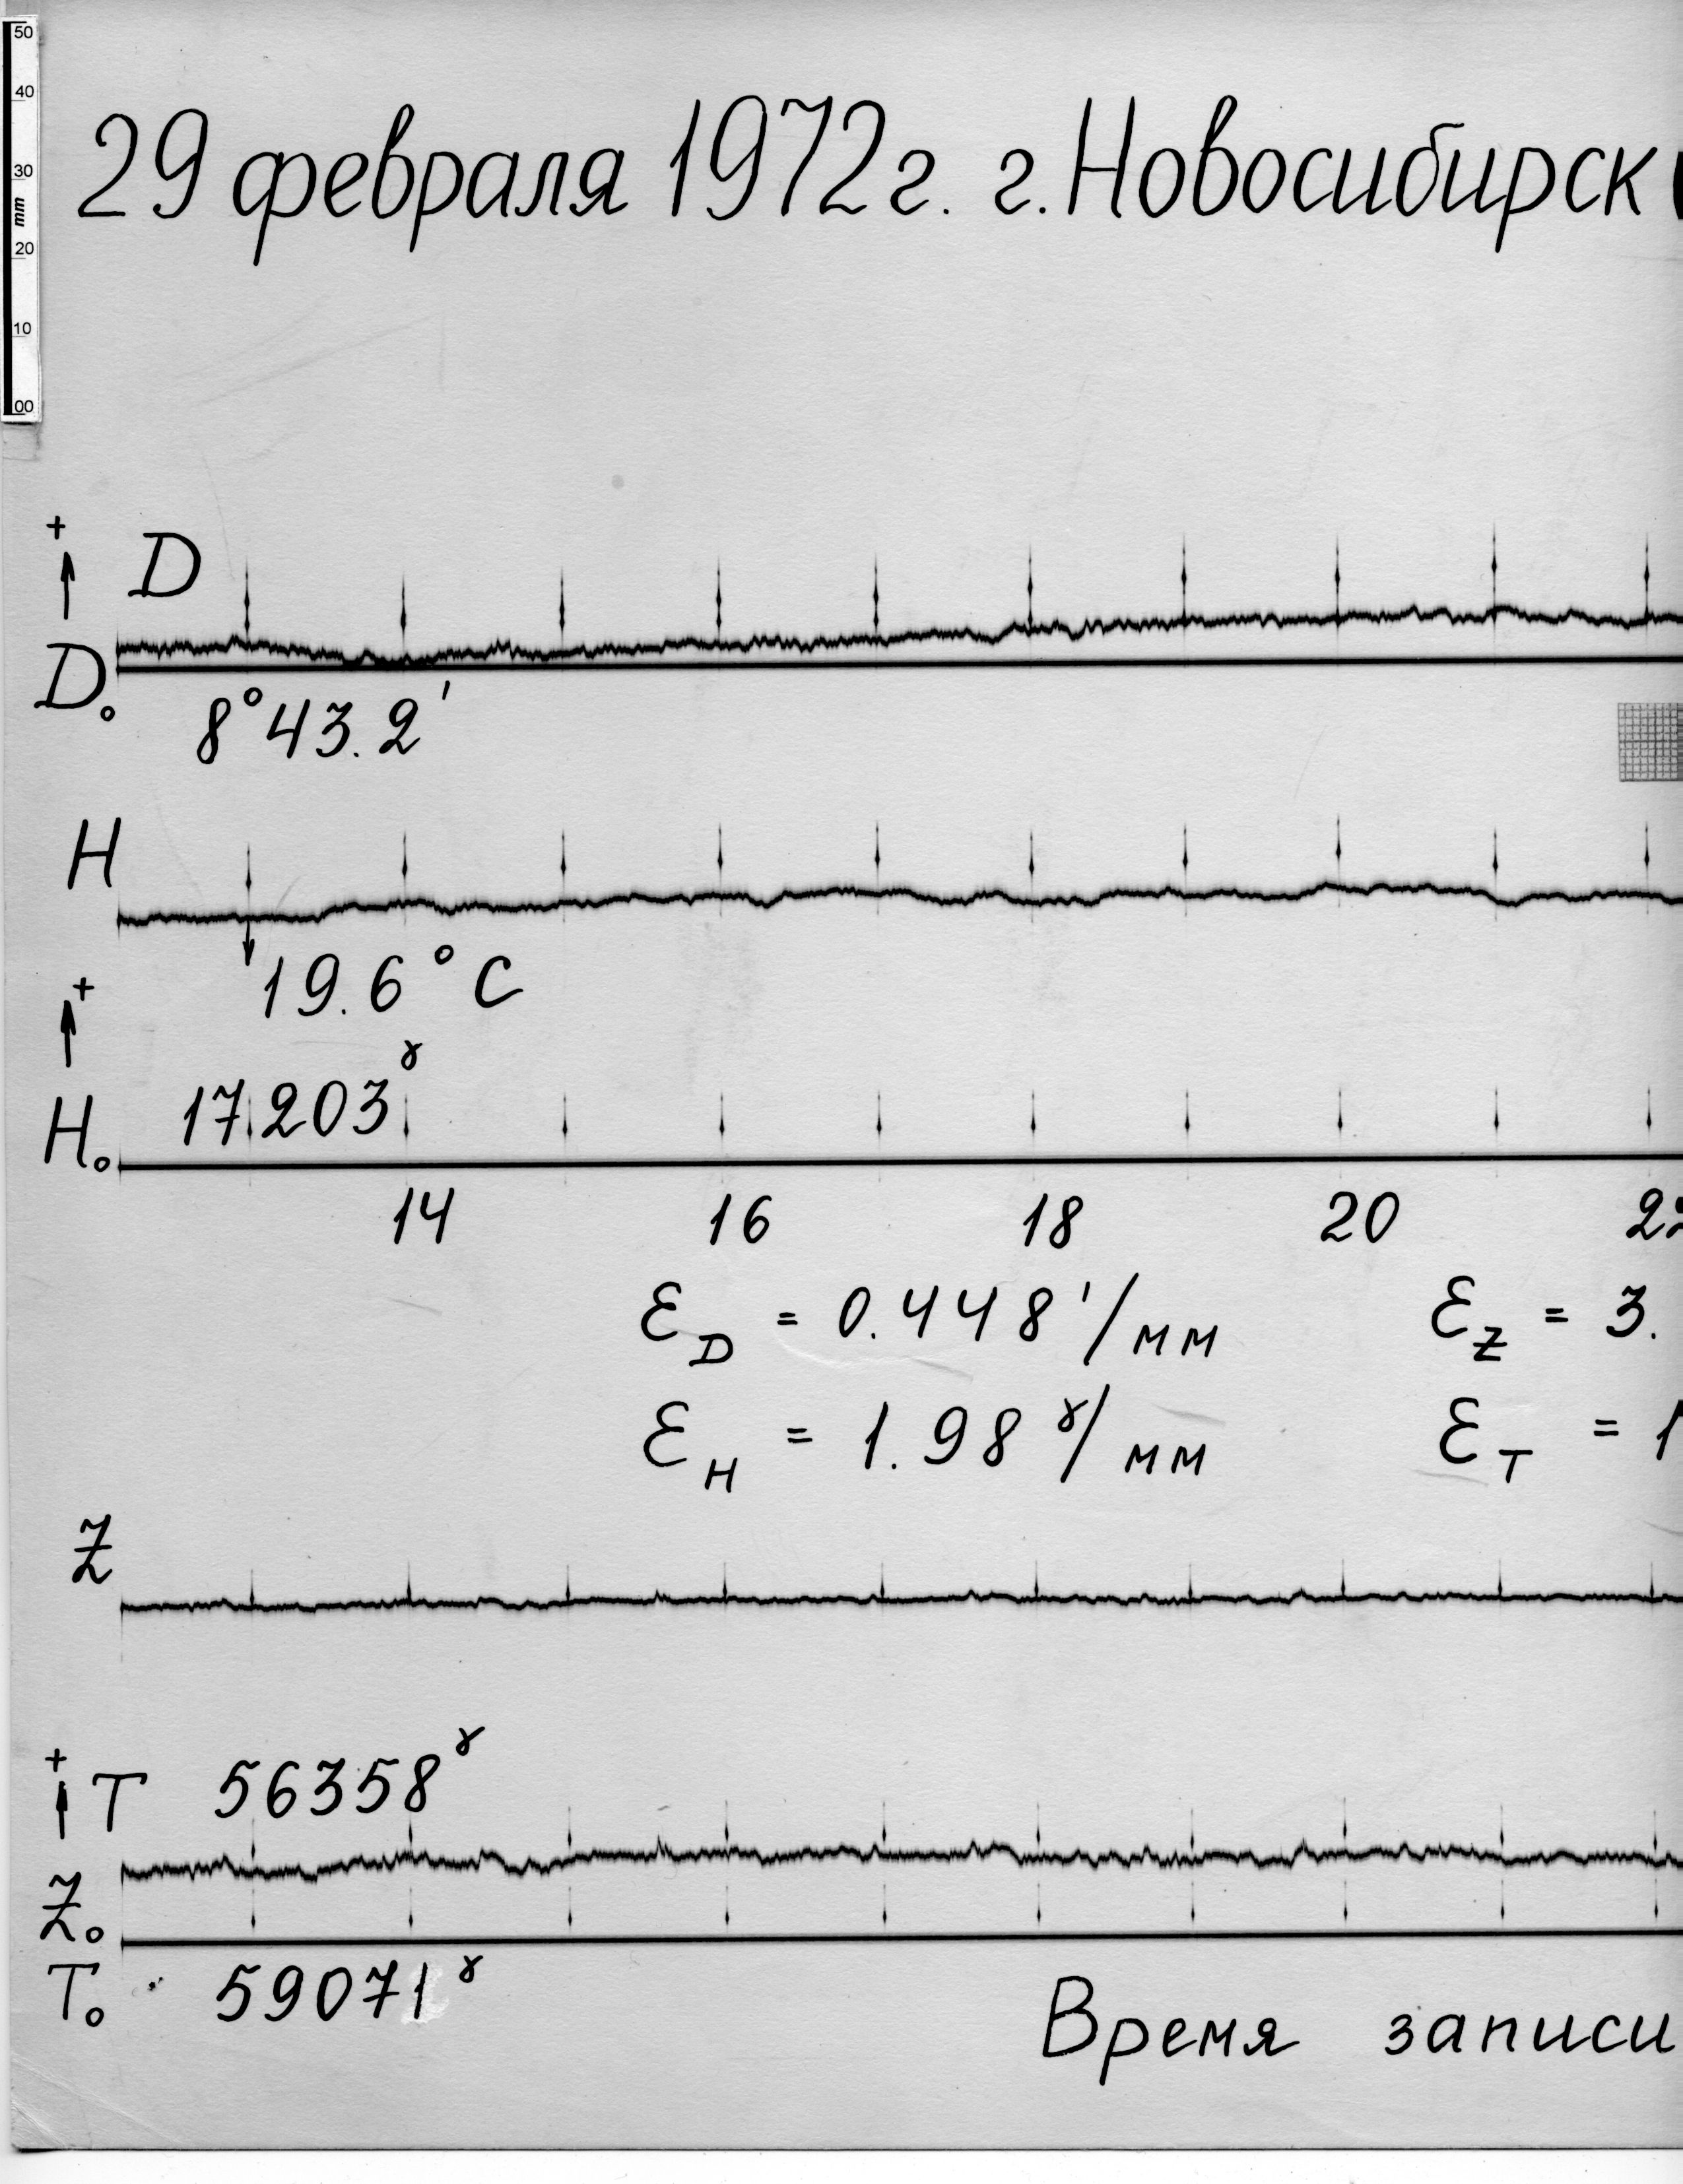 50
40
30
mm
20
10
00
29 февраля 1972г. г. Новосибирск (
+
D
D₀
8°43.2'
H
19.6°C
+
17203ᵞ
H₀
14 16 18 20 22
Ɛ_D = 0.448'/мм Ɛ_Z = 3.
Ɛ_H = 1.98ᵞ/мм Ɛ_T = 1
Z
+
T 56358ᵞ
Z₀
T₀ 59071ᵞ
Время записи